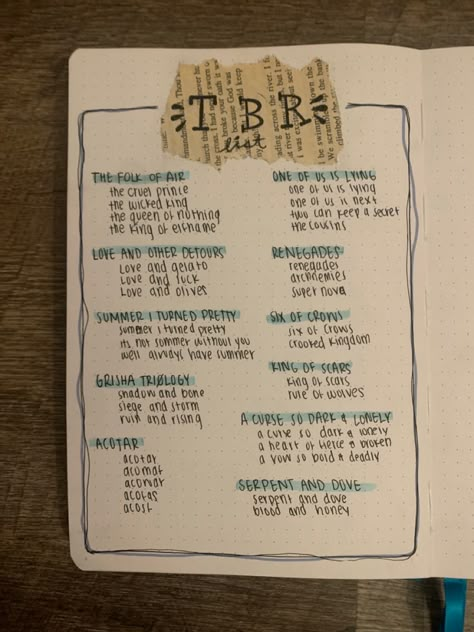 TBR
list
THE FOLK OF AIR
the cruel prince
the wicked king
the queen of nothing
the king of elfhame
LOVE AND OTHER DETOURS
Love and gelato
Love and luck
Love and olives
SUMMER I TURNED PRETTY
summer I turned pretty
its not summer without you
we'll always have summer
GRISHA TRIOLOGY
shadow and bone
siege and storm
ruin and rising
ACOTAR
acotar
acomaf
acowar
acofas
acosf
ONE OF US IS LYING
one of us is lying
one of us is next
two can keep a secret
the cousins
RENEGADES
renegades
archenemies
super nova
SIX OF CROWS
six of crows
crooked kingdom
KING OF SCARS
king of scars
rule of wolves
A CURSE SO DARK & LONELY
a curse so dark & lonely
a heart so fierce & broken
a vow so bold & deadly
SERPENT AND DOVE
serpent and dove
blood and honey